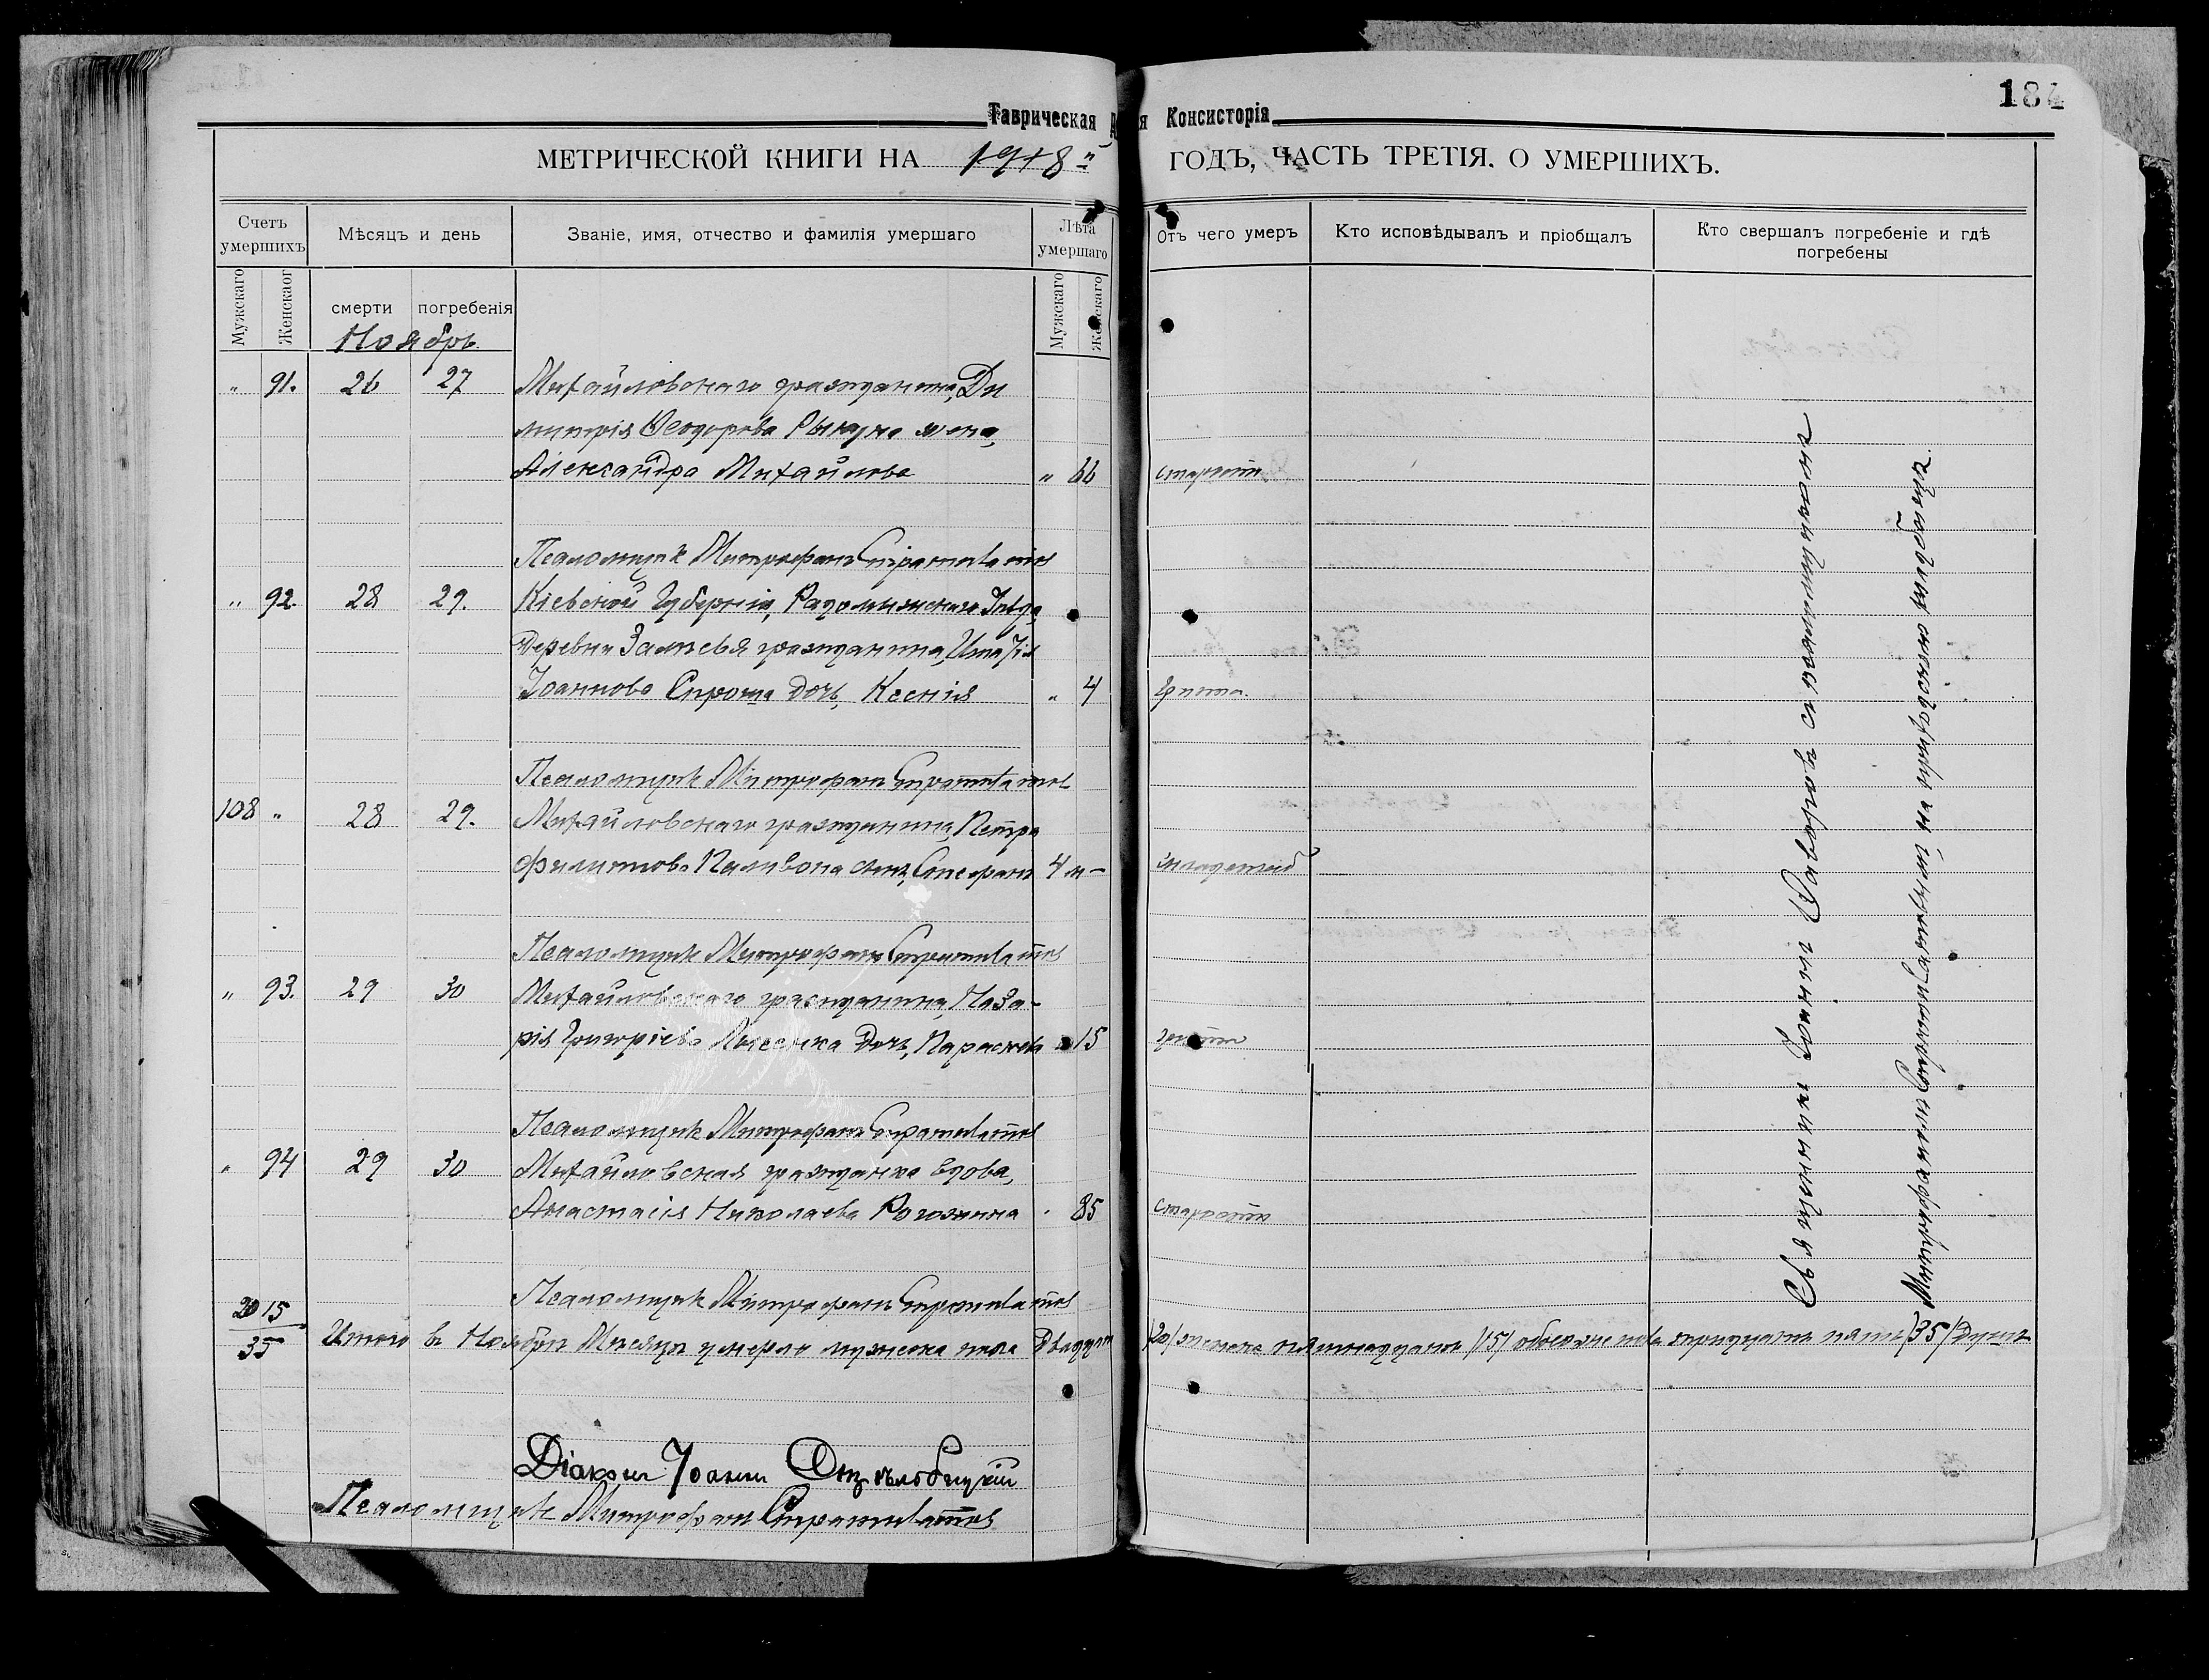 184
Таврическая Д я Консисторія
МЕТРИЧЕСКОЙ КНИГИ НА 1918 й ГОДЪ, ЧАСТЬ ТРЕТІЯ. О УМЕРШИХЪ.
Счетъ умершихъ
Мѣсяцъ и день
Званіе, имя, отчество и фамилія умершаго
Лѣта умершаго
Отъ чего умеръ
Кто исповѣдывалъ и пріобщалъ
Кто свершалъ погребеніе и гдѣ погребены
Мужскаго
Женскаог
смерти
погребенія
Мужскаго
Женскаго
Ноябрь
" 91. 26 27 Михайловскаго гражданина, Ди
митрія Ѳеодорова жена,
Александра Михайлова " 66 старости
Псаломщикъ Митрофанъ Стратилатовъ
" 92. 28 29. Кіевской Губерніи, Радомысльскаго Уѣзда,
Деревни Залѣсья гражданина, Игнатія
Іоаннова дочь, Ксенія " 4 гриппа.
Псаломщикъ Митрофанъ Стратилатовъ
108 " 28 29. Михайловскаго гражданина, Петра
Филиппова Паливона сынъ, Стефанъ 4 м -
Псаломщикъ Митрофанъ Стратилатовъ
" 93. 29 30 Михайловскаго гражданина, Наза-
рія Григоріева дочь, Параскева 15 гриппа
Псаломщикъ Митрофанъ Стратилатовъ
" 94 29 30 Михайловская гражданка вдова,
Анастасія Николаева Рогожина " 85 старости
Псаломщикъ Митрофанъ Стратилатовъ
20 15
35 Итого въ Ноябрѣ Мѣсяцѣ умерло мужска пола двадцать /20/ женска пятнадцать /15/ обоего пола тридцать пять /35/ душъ
Діаконъ Іоаннъ
Псаломщикъ Митрофанъ Стратилатовъ
Священникъ Іоаннъ съ псаломщикомъ
Митрофаномъ Стратилатовымъ на приходскомъ кладбищѣ.